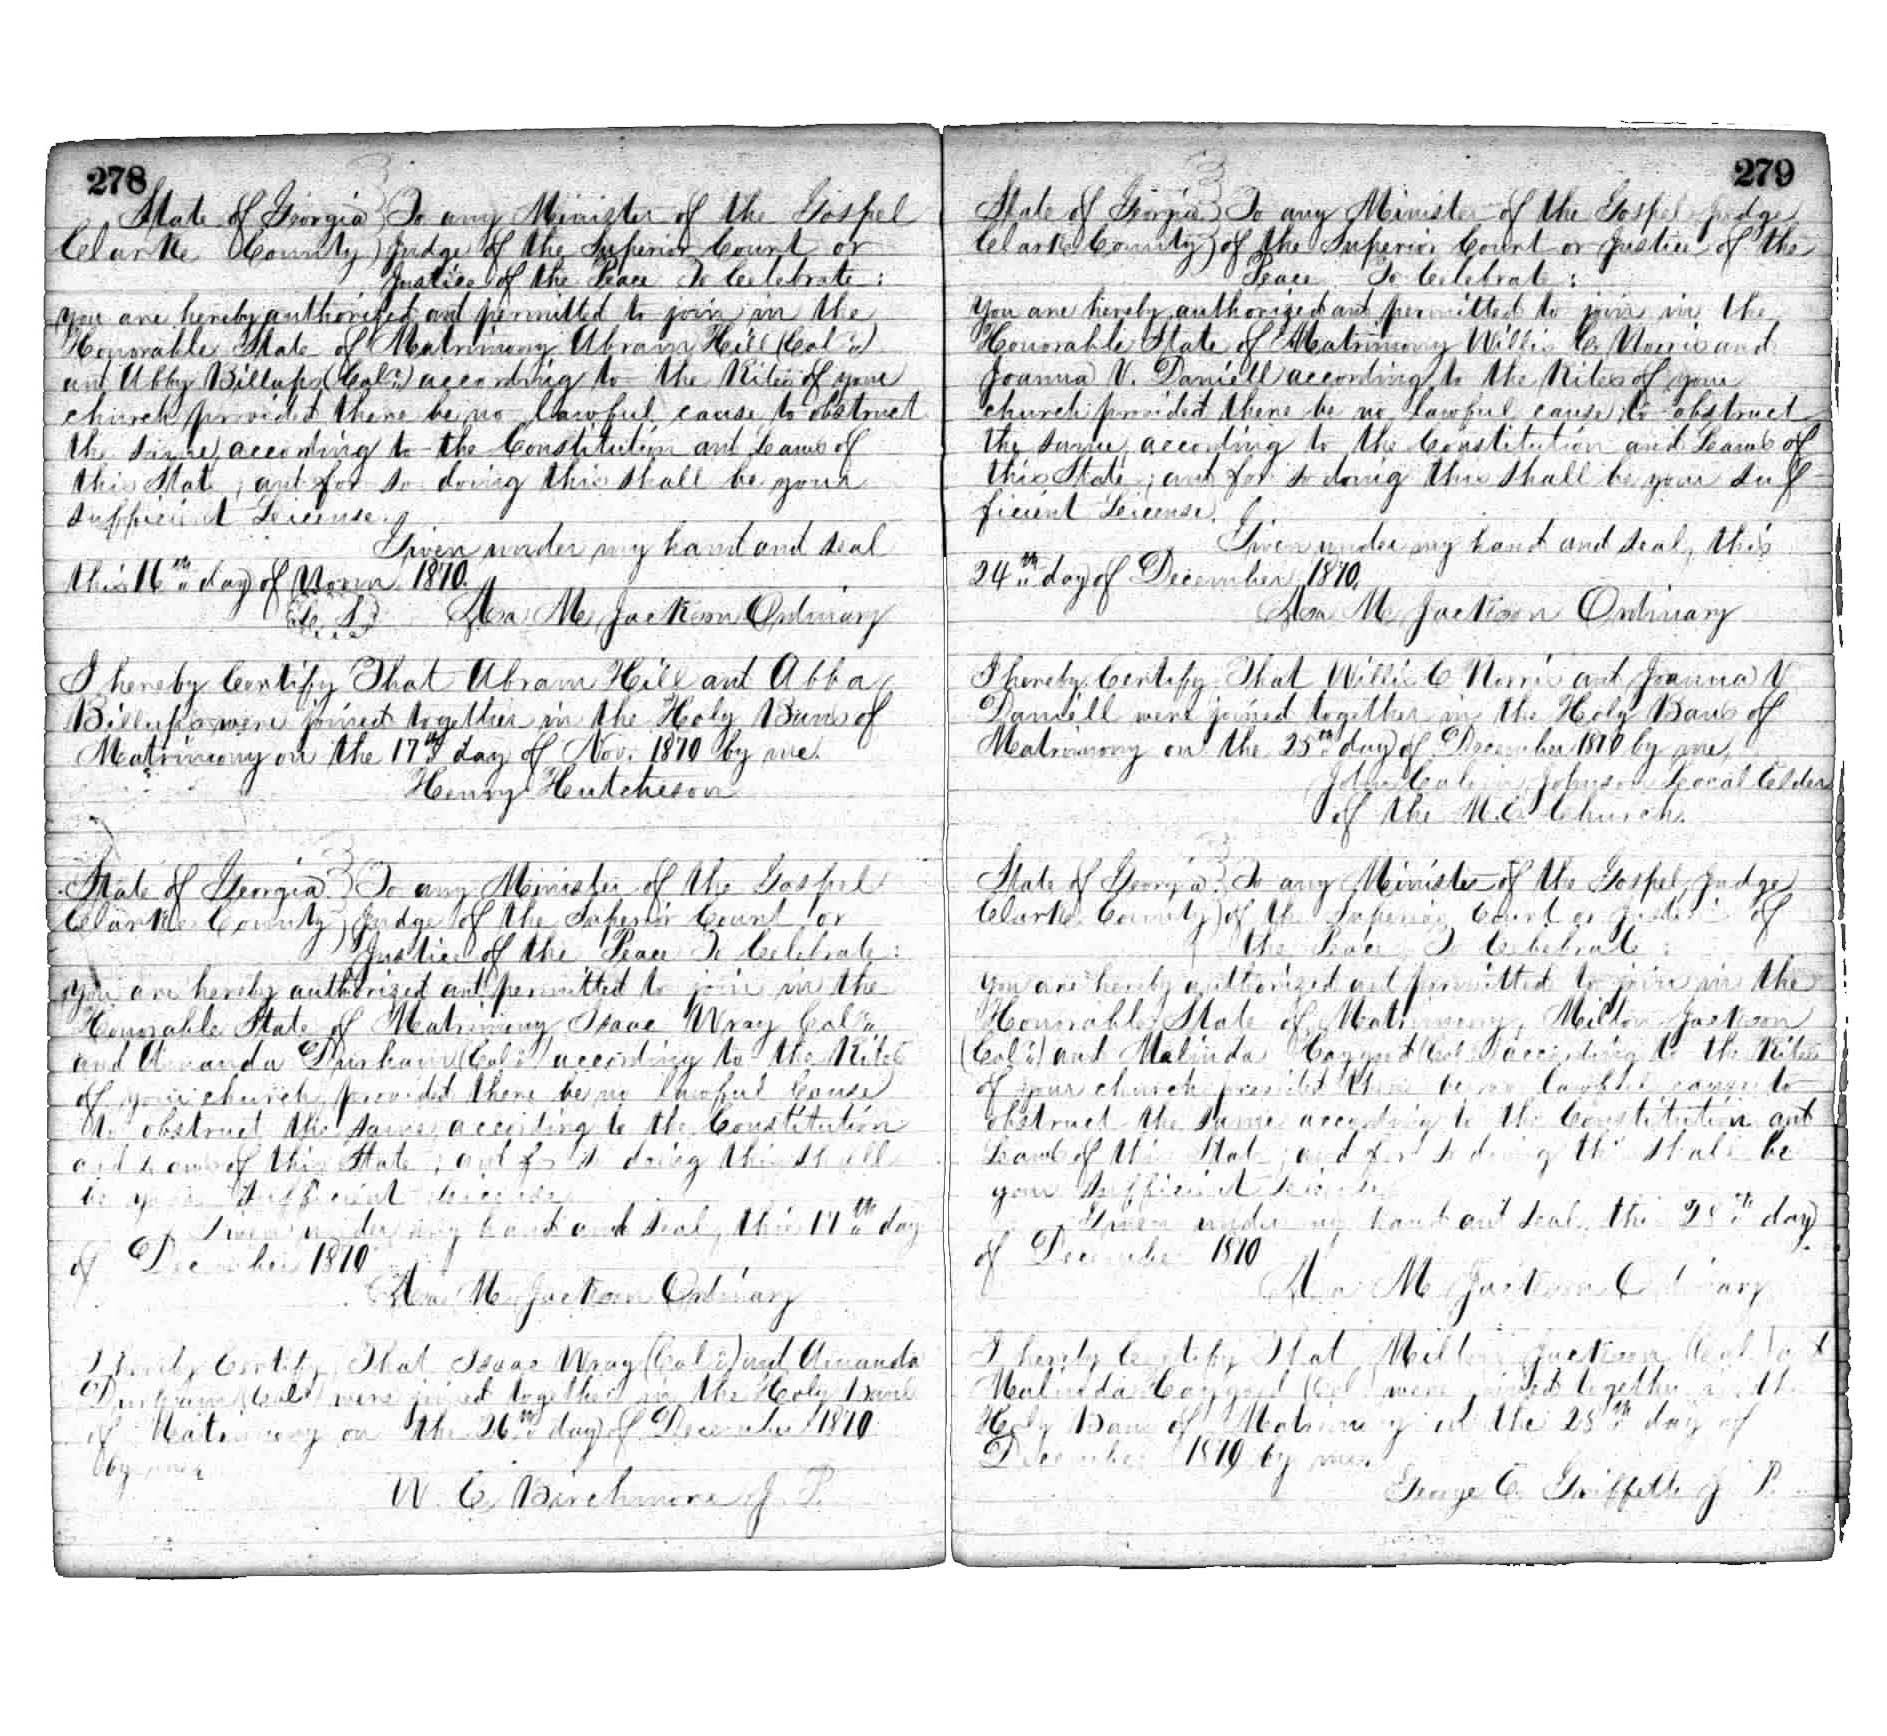 278
State of Georgia } To any Minister of the Gospel
Clarke County } Judge of the Superior Court or
Justice of the Peace To Celebrate:
You are hereby authorized and permitted to join in the
Honorable State of Matrimony Abram Hill (Col"d)
and Abby Billups (Col"d) according to the Rites of your
church, provided there be no lawful cause to obstruct
the same, according to the Constitution and Laws of
this State; and for so doing this shall be your
sufficient License.
Given under my hand and seal
this 16th day of Novr. 1870.
L. S. Asa M. Jackson Ordinary
I hereby Certify That Abram Hill and Abba
Billups were joined together in the Holy Bans of
Matrimony on the 17th day of Nov. 1870 by me.
Henry Hutcheson
State of Georgia } To any Minister of the Gospel
Clarke County } Judge of the Superior Court or
Justice of the Peace To Celebrate:
You are hereby authorized and permitted to join in the
Honorable State of Matrimony Isaac Wray Col"d
and Amanda Durham (Col"d) according to the Rites
of your church, provided there be no lawful Cause
to obstruct the same, according to the Constitution
and Laws of this State; and for so doing this shall
be your sufficient License.
Given under my hand and seal, this 17th day
of December 1870
Asa M. Jackson Ordinary
I hereby Certify That Isaac Wray (Col"d) and Amanda
Durham (Col") were joined together in the Holy Bans
of Matrimony on the 26th day of December 1870
by me
W. C. Birchmore J. P.
279
State of Georgia } To any Minister of the Gospel Judge
Clarke County } of the Superior Court or Justice of the
Peace To Celebrate:
You are hereby authorized and permitted to join in the
Honorable State of Matrimony Willis C. Norris and
Joanna V. Daniell according to the Rites of your
church, provided there be no lawful cause, to obstruct
the same, according to the Constitution and Laws of
this State; and for so doing this shall be your suf-
ficient License.
Given under my hand and seal, this
24th day of December 1870.
Asa M. Jackson Ordinary
I hereby Certify That Willis C Norris and Joanna V
Daniell were joined together in the Holy Bans of
Matrimony on the 25th day of December 1870 by me,
John Calvin Johnson Local Elder
of the M.E. Church.
State of Georgia } To any Minister of the Gospel, Judge
Clarke County } of the Superior Court or Justice of
the Peace To Celebrate:
You are hereby authorized and permitted to join in the
Honorable State of Matrimony, Milton Jackson
(Col"d) and Malinda Haygood (Col"d) according to the Rites
of your church provided there be no lawful cause to
obstruct the same according to the Constitution and
Laws of this State; and for so doing this shall be
your sufficient License
Given under my hand and seal, this 28th day
of December 1870
Asa M. Jackson Ordinary
I hereby Certify That Milton Jackson (Col") and
Malinda Haygood (Col") were joined together in the
Holy Bans of Matrimony on the 28th day of
December 1870 by me.
George C. Griffeth J. P.